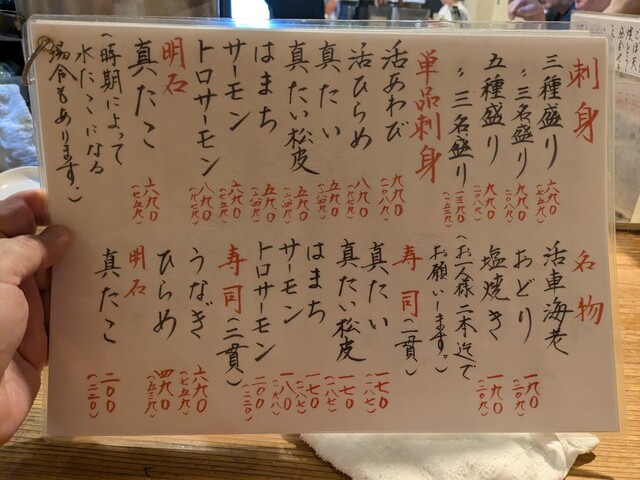 刺身
三種盛り 六九〇
(七五九)
〃三名盛り 九九〇
(一〇八九)
五種盛り 九九〇
(一〇八九)
〃三名盛り 一三九〇
(一五二九)
単品刺身
活あわび 九九〇
(一〇八九)
活ひらめ 八九〇
(九七九)
真たい 五九〇
(六四九)
真たい松皮 五九〇
(六四九)
はまち 五九〇
(六四九)
サーモン 六九〇
(七五九)
トロサーモン 八九〇
(九七九)
明石
真たこ 六九〇
(七五九)
(時期によって
水だこになる
場合もあります。)
名物
活車海老
おどり 一九〇
(二〇九)
塩焼き 一九〇
(二〇九)
(お一人様二本迄で
お願いします。)
寿司(一貫)
真たい 一七〇
(一八七)
真たい松皮 一七〇
(一八七)
はまち 一七〇
(一八七)
サーモン 一八〇
(一九八)
トロサーモン 二〇〇
(二二〇)
寿司(二貫)
うなぎ 六九〇
(七五九)
ひらめ 四九〇
(五三九)
明石
真たこ 二〇〇
(二二〇)